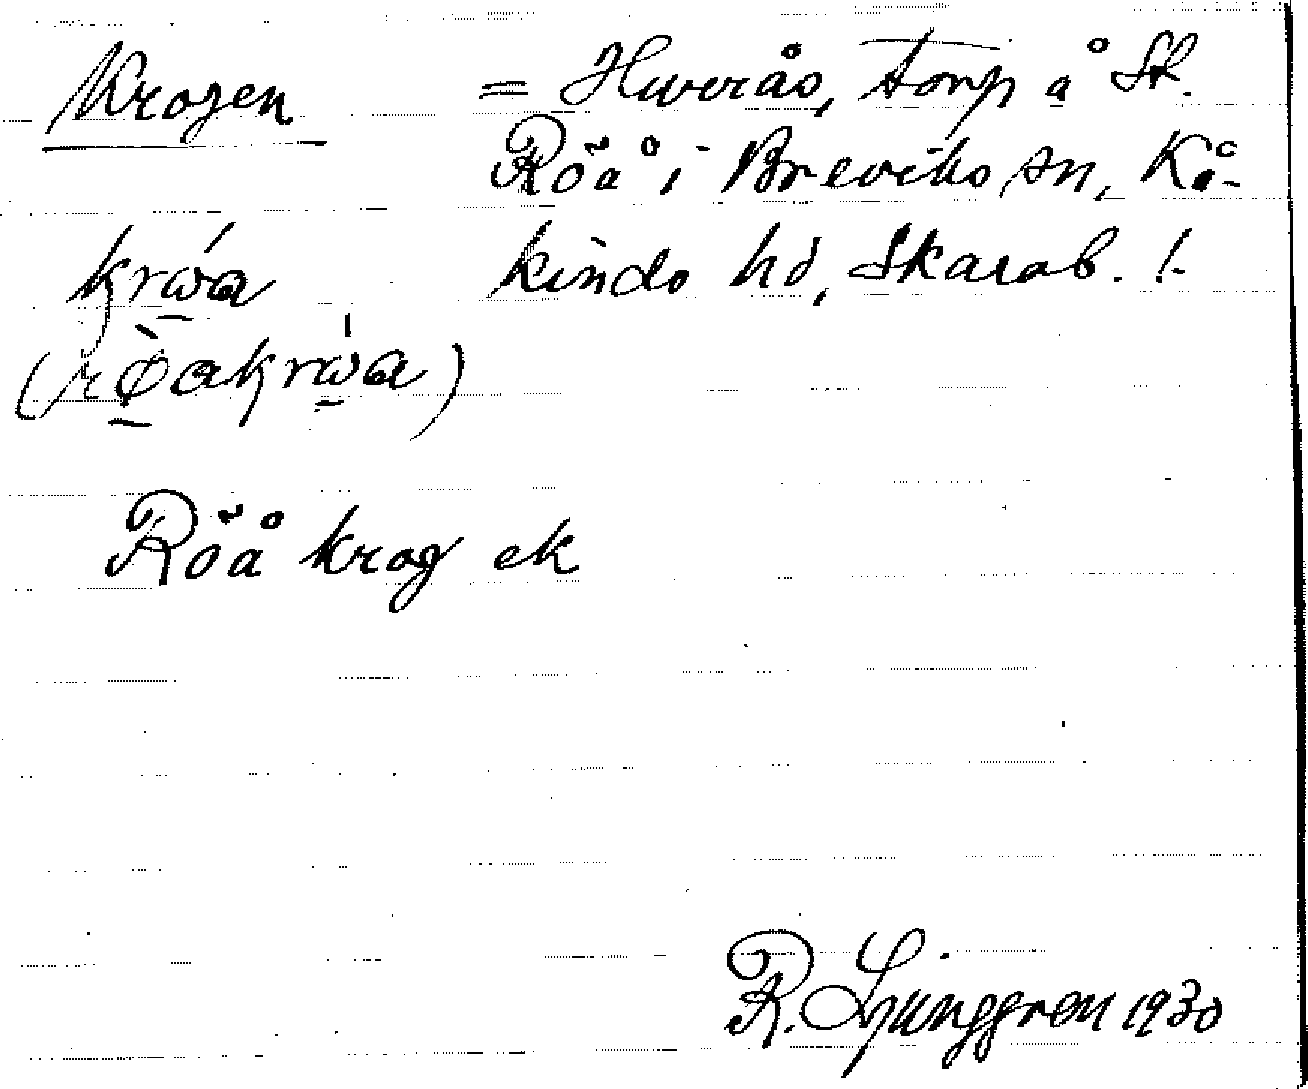 Krogen = Huvrås, torp å St.
Röå i Breviks sn, Kå-
kinds hd, Skarab. l.
krωa
(röakrωa)
Röå krog ek
R. Ljunggren 1930